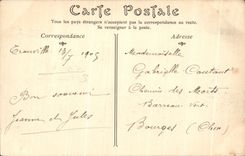 Carte Postale
Tous les pays étrangers n'acceptent pas la correspondance au recto.
Se renseigner à la poste.
Correspondance
Adresse
Trouville 13/7 1905
Bon souvenir
Jeanne et Jules
Mademoiselle
Gabrielle
Chemin des
Barreau vert
Bourges (Cher)